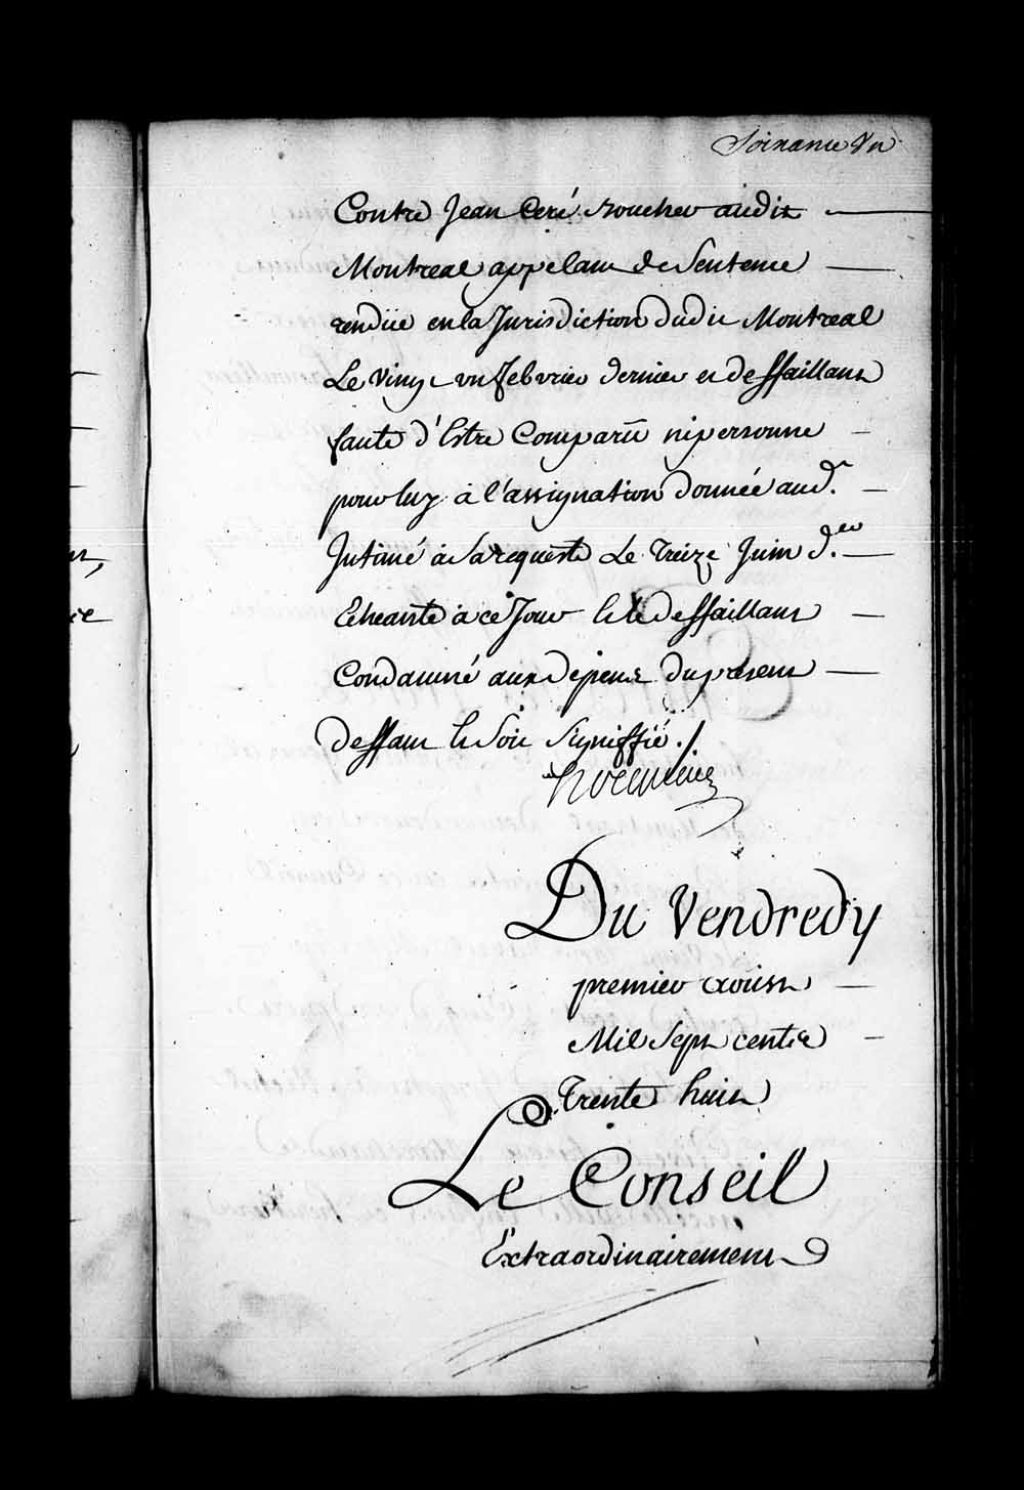 Soixante Un
Contre Jean Ceré boucher audit
Montreal appelant de Sentence
rendüe en la Jurisdiction dudit Montreal
Le Vingt un febvrier dernier et deffaillant
faute d'Estre Comparü ni personne
pour luy à l'assignation donnée aud.
Intimé à sa requeste Le Treize Juin d.er
Echeante à ce Jour Et le deffaillant
Condamné aux dépens du present
deffaut Et Soit Signiffié ./.
Du Vendredy
premier aoust
Mil Sept cents
Trente huit
Le Conseil
Extraordinairement